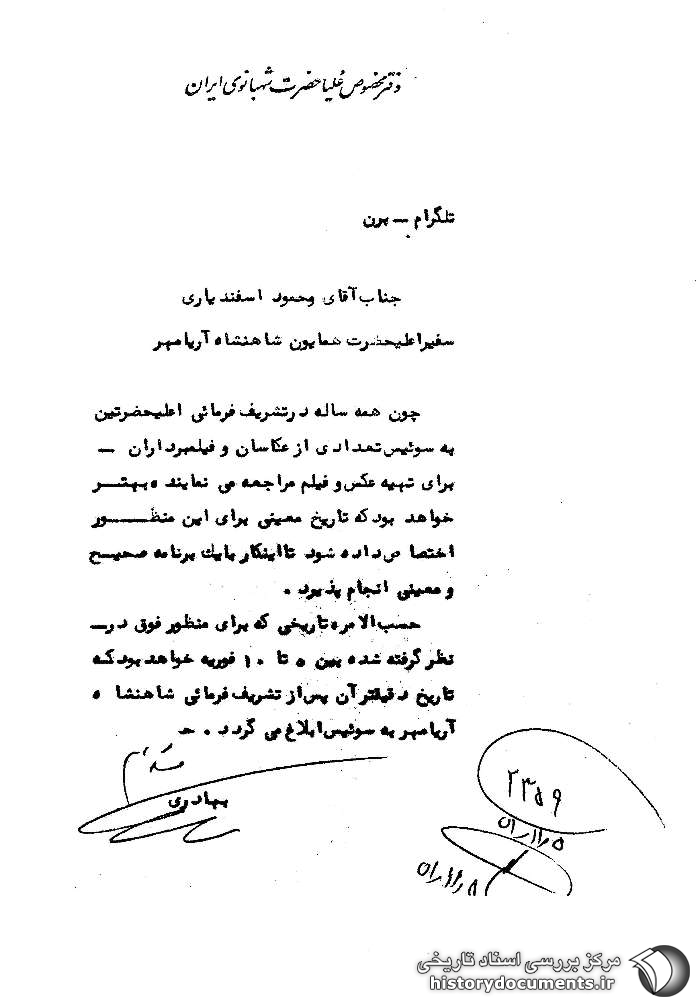 دفتر مخصوص علیاحضرت شهبانوی ایران
تلگرام – برن
جناب آقای محمود اسفندیاری
سفیر اعلیحضرت همایون شاهنشاه آریامهر
چون همه ساله در تشریف فرمائی اعلیحضرتین
به سوئیس تعدادی از عکاسان و فیلمبرداران –
برای تهیه عکس و فیلم مراجعه می نمایند ، بهتر
خواهد بود که تاریخ معینی برای این منظور
اختصاص داده شود تا اینکار با یک برنامه صحیح
و معینی انجام پذیرد .
حسب الامر ، تاریخی که برای منظور فوق در –
نظر گرفته شده بین ۵ تا ۱۰ فوریه خواهد بود که
تاریخ دقیقتر آن پس از تشریف فرمائی شاهنشاه
آریامهر به سوئیس ابلاغ می گردد .
بهادری
۲۳۵۹
مرکز بررسی اسناد تاریخی
historydocuments.ir